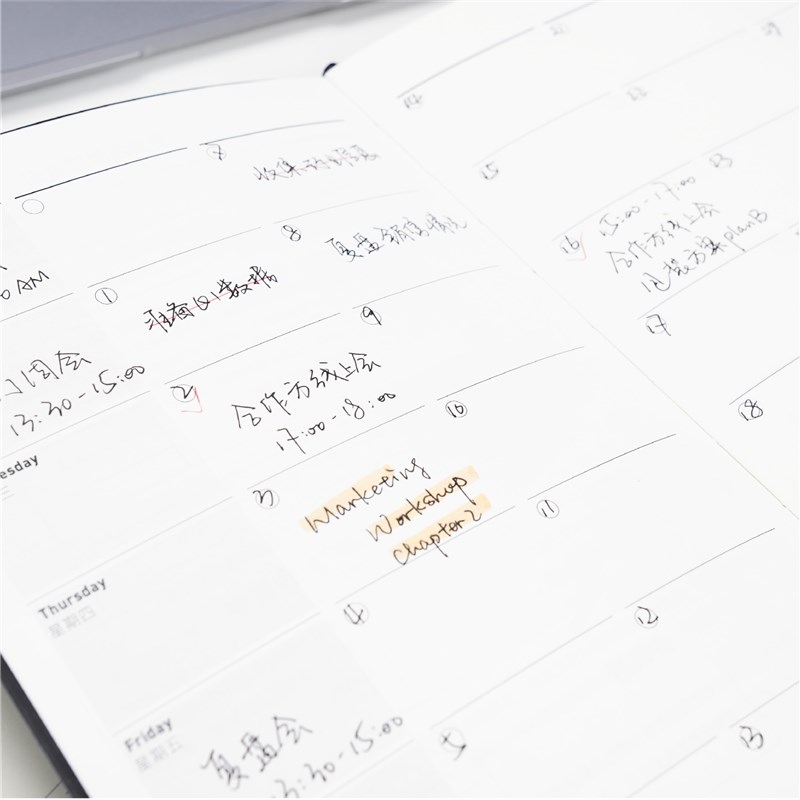 0 AM
周会
13:30-15:00
esday
三
Thursday
星期四
Friday
星期五
复盘会
3:30-15:00
7
1
准备Q1数据
8
复盘销售情况
2
合作方线上会
17:00-18:00
9
3
Marketing
Workshop
chapter 2
10
4
11
5
12
13
14
15
16
15:00-17:00
合作方线上会
方案planB
17
18
22
23